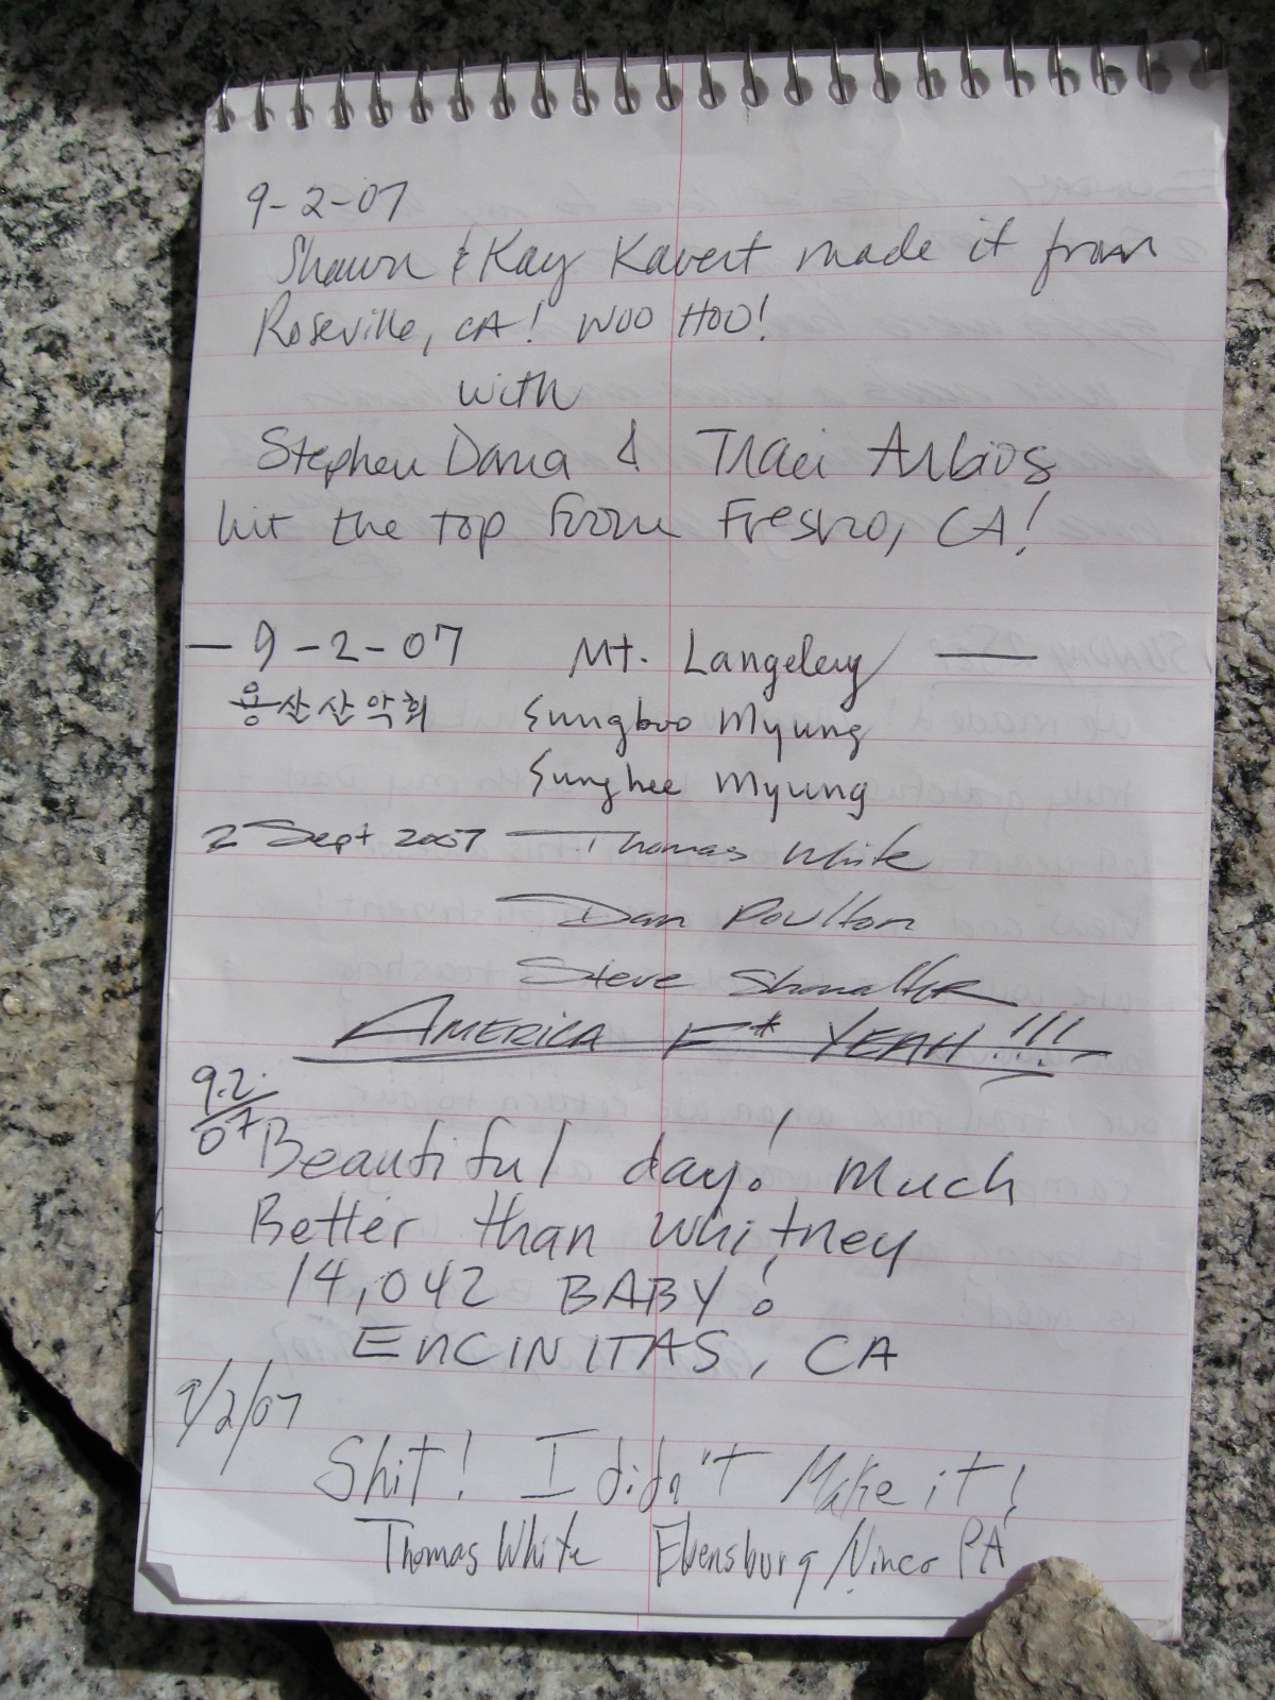 9-2-07
Shawn & Kay Kavert made it from
Roseville, CA! WOO HOO!
with
Stephen Dana & Traci Arbios
hit the top from Fresno, CA!
— 9-2-07 Mt. Langeley —
용산산악회 Sungboo Myung
Sunghee Myung
2 Sept 2007 Thomas White
Dan Poulton
Steve
AMERICA F* YEAH!!!
9.2.
07
Beautiful day! Much
Better than Whitney!
14,042 BABY!
ENCINITAS, CA
9/2/07
Shit! I didn't Make it!
Thomas White Ebensburg/ PA